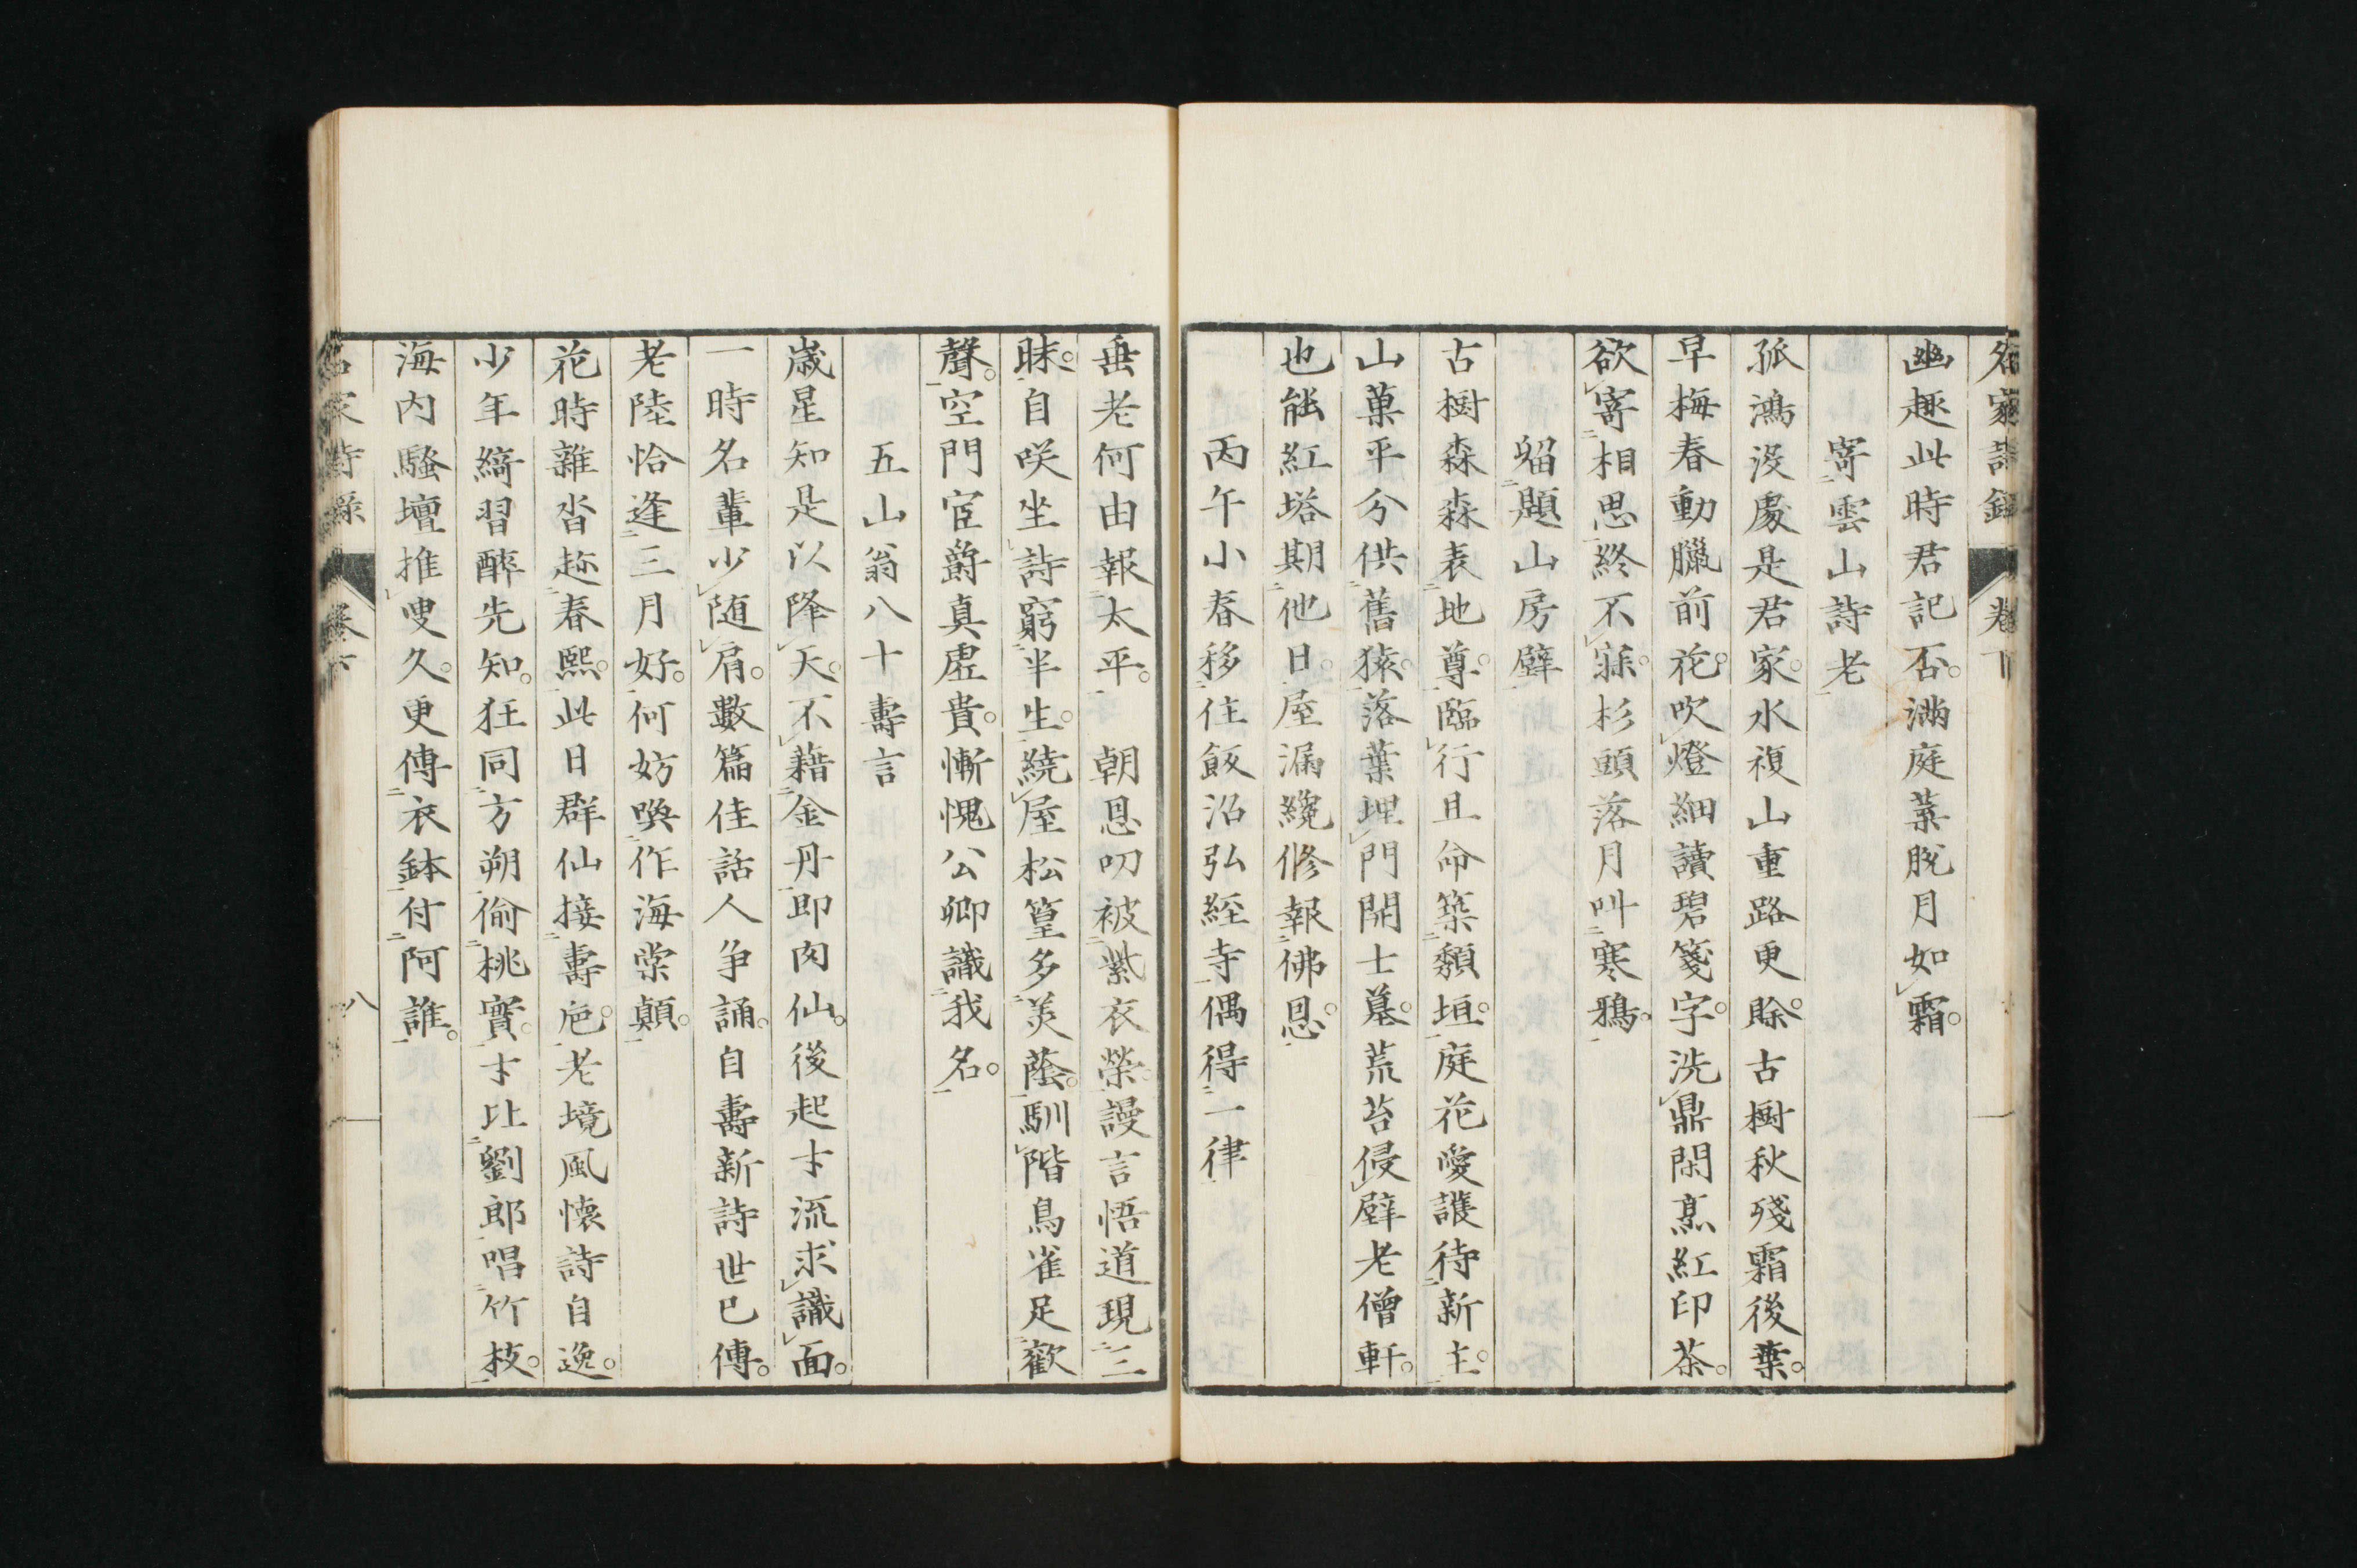 名家詩録 卷下
幽趣此時君記否。滿庭葉脫月如霜。
寄雲山詩老
孤鴻沒處是君家。水複山重路更賒。古樹秋殘霜後葉。
早梅春動臘前花。吹燈細讀碧箋字。洗鼎閑烹紅印茶。
欲寄相思終不寐。杉頭落月叫寒鴉。
留題山房壁
古樹森森表地尊。臨行且命築頽垣。庭花愛護待新主。
山菓平分供舊猿。落葉埋門開士墓。荒苔侵壁老僧軒。
也能紅塔期他日。屋漏纔修報佛恩。
丙午小春移住飯沼弘経寺偶得一律
垂老何由報太平。朝恩叨被紫衣榮。謾言悟道現三
昧。自咲坐詩窮半生。繞屋松篁多美蔭。馴階鳥雀足歡
聲。空門宦爵真虛貴。慚愧公卿識我名。
五山翁八十壽言
歲星知是以降天。不藉金丹即肉仙。後起才流求識面。
一時名輩少随肩。數篇佳話人爭誦。自壽新詩世已傳。
老陸恰逢三月好。何妨喚作海棠顛。
花時雜沓趂春熙。此日群仙接壽卮。老境風懷詩自逸。
少年綺習醉先知。狂同方朔偷桃實。才比劉郎唱竹枝。
海內騷壇推叟久。更傳衣鉢付阿誰。
名家詩録 卷下 八